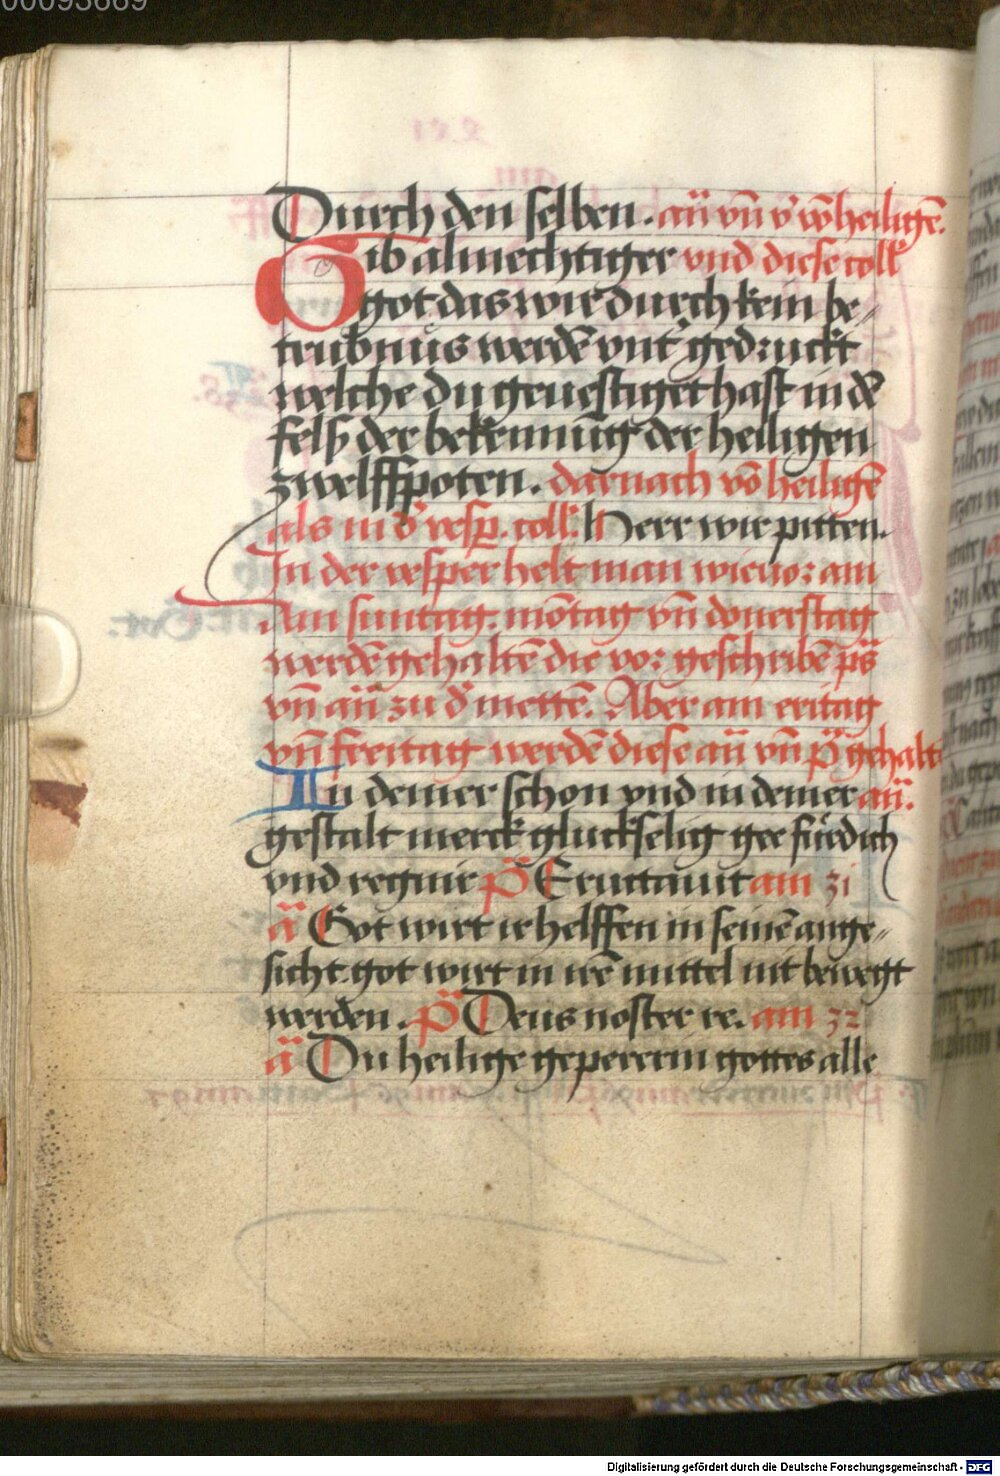 00093669
Durch den selben. añ vñ v̕ vō heiligē.
Gib almechtiger vnd diese coll̕
got das wir durch kein be⸗
trubnus werdē vnt̕ gedruckt
welche du geuestiget hast in dē
felß der bekennūg der heiligen
zwelffpoten. darnach vō heiligē
als in d̕ vesp̲. coll̕. Herr wir pitten.
In der vesper helt man wie vor am
Am suntag. mōtag vñ donerstag
werdē gehaltē die vor geschribē ps̄
vñ añ zu d̕ mettē. Aber am eritag
vñ freitag werdē diese añ vñ p̄s gehalt
In deiner schon vnd in deiner añ.
gestalt merck gluckselig gee fürdich
vnd regnir p̄s Eructauit am 31
ā Got wirt ir helffen in seinē ange⸗
sicht. got wirt in irē mittel nit bewegt
werden. p̄s Deus noster re. am 32
ā Du heilige gepererin gottes alle
Digitalisierung gefördert durch die Deutsche Forschungsgemeinschaft - DFG